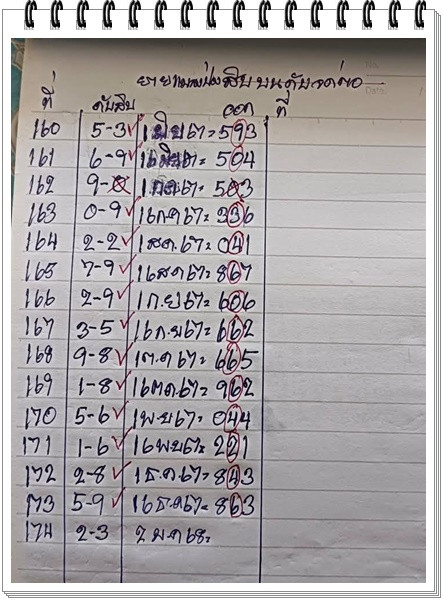 ที่ ดับสิบ ออก ที่
160 5-3 ✓ 1 มิย 67= 593
161 6-9 ✓ 16 มิย 67= 504
162 9-0 1 กค 67= 503
163 0-9 ✓ 16 ก.ค 67= 336
164 2-2 ✓ 1 ส.ค. 67= 041
165 7-9 ✓ 16 ส.ค 67= 867
166 2-9 ✓ 1 ก.ย 67= 606
167 3-5 ✓ 16 ก.ย 67= 662
168 9-8 ✓ 1 ต.ค 67= 665
169 1-8 ✓ 16 ต.ค. 67= 962
170 5-6 ✓ 1 พ.ย 67= 044
171 1-6 ✓ 16 พ.ย 67= 221
172 2-8 ✓ 1 ธ.ค 67= 843
173 5-9 ✓ 16 ธ.ค 67= 863
174 2-3 2 ม.ค 68=